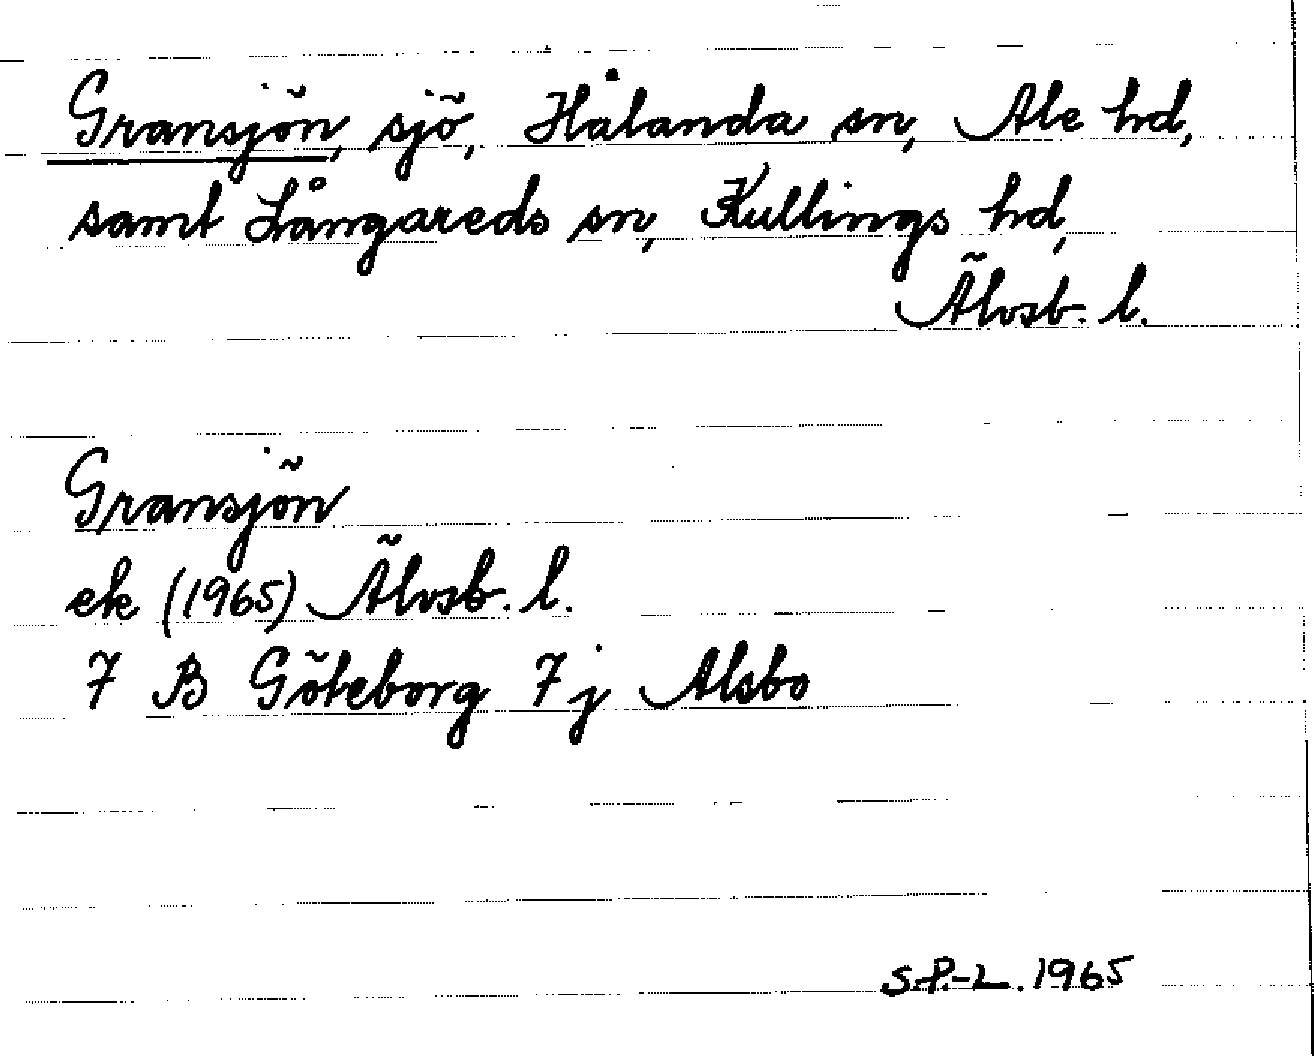 Gransjön, sjö, Hålanda sn, Ale hd,
samt Långareds sn, Kullings hd,
Älvsb. l.
Gransjön
ek (1965) Älvsb. l.
7 B Göteborg 7 j Alsbo
S.P.-L. 1965